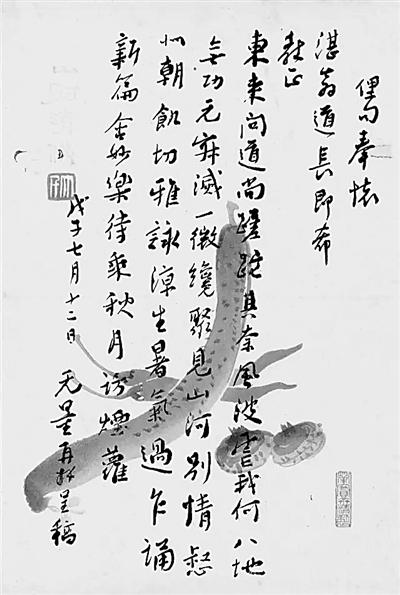 俚句奉懷
湛翁道長即希
教正
東来问道尚蹉跎其奈風波我何八地
無功元寂滅一微纔聚見山河別情惄
似朝飢切雅詠涼生暑氣過乍誦
新篇含妙樂待乘秋月訪煙蘿
戊子七月十二日 无量再拜呈稿